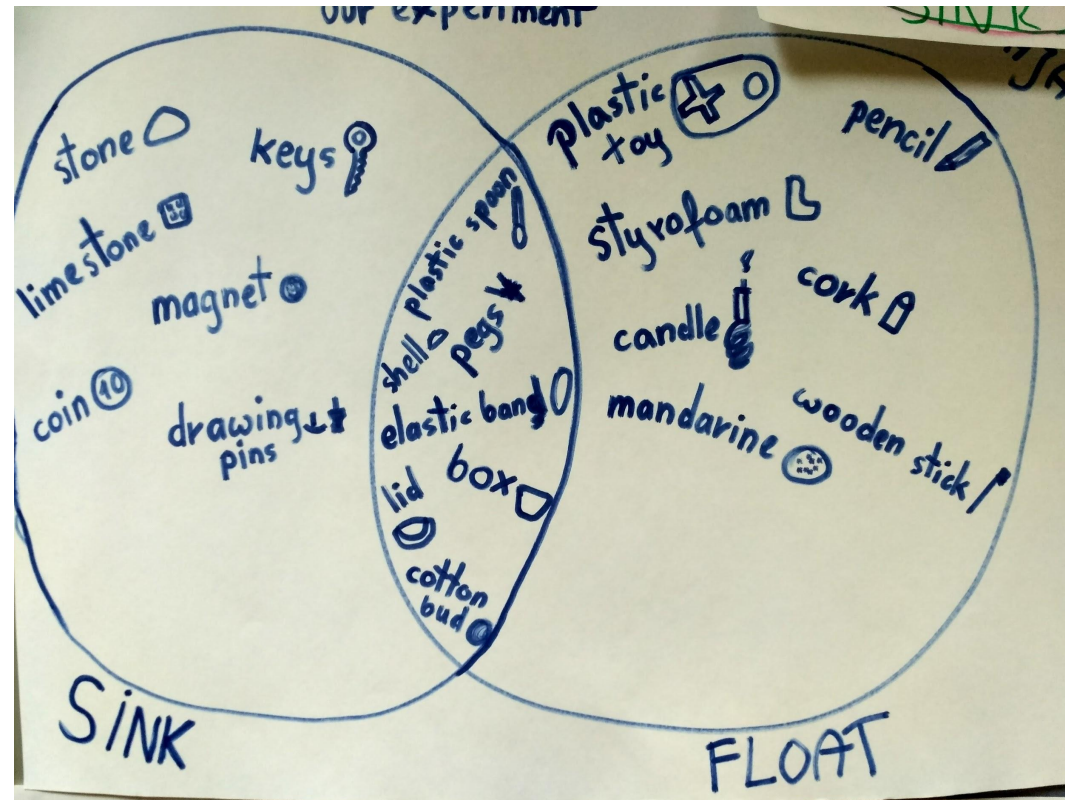 our experiment
SINK
stone
keys
limestone
magnet
coin 10
drawing
pins
plastic spoon
pegs
shell
elastic band
box
lid
cotton
bud
plastic
toy
pencil
styrofoam
cork
candle
mandarine
wooden stick
SINK
FLOAT